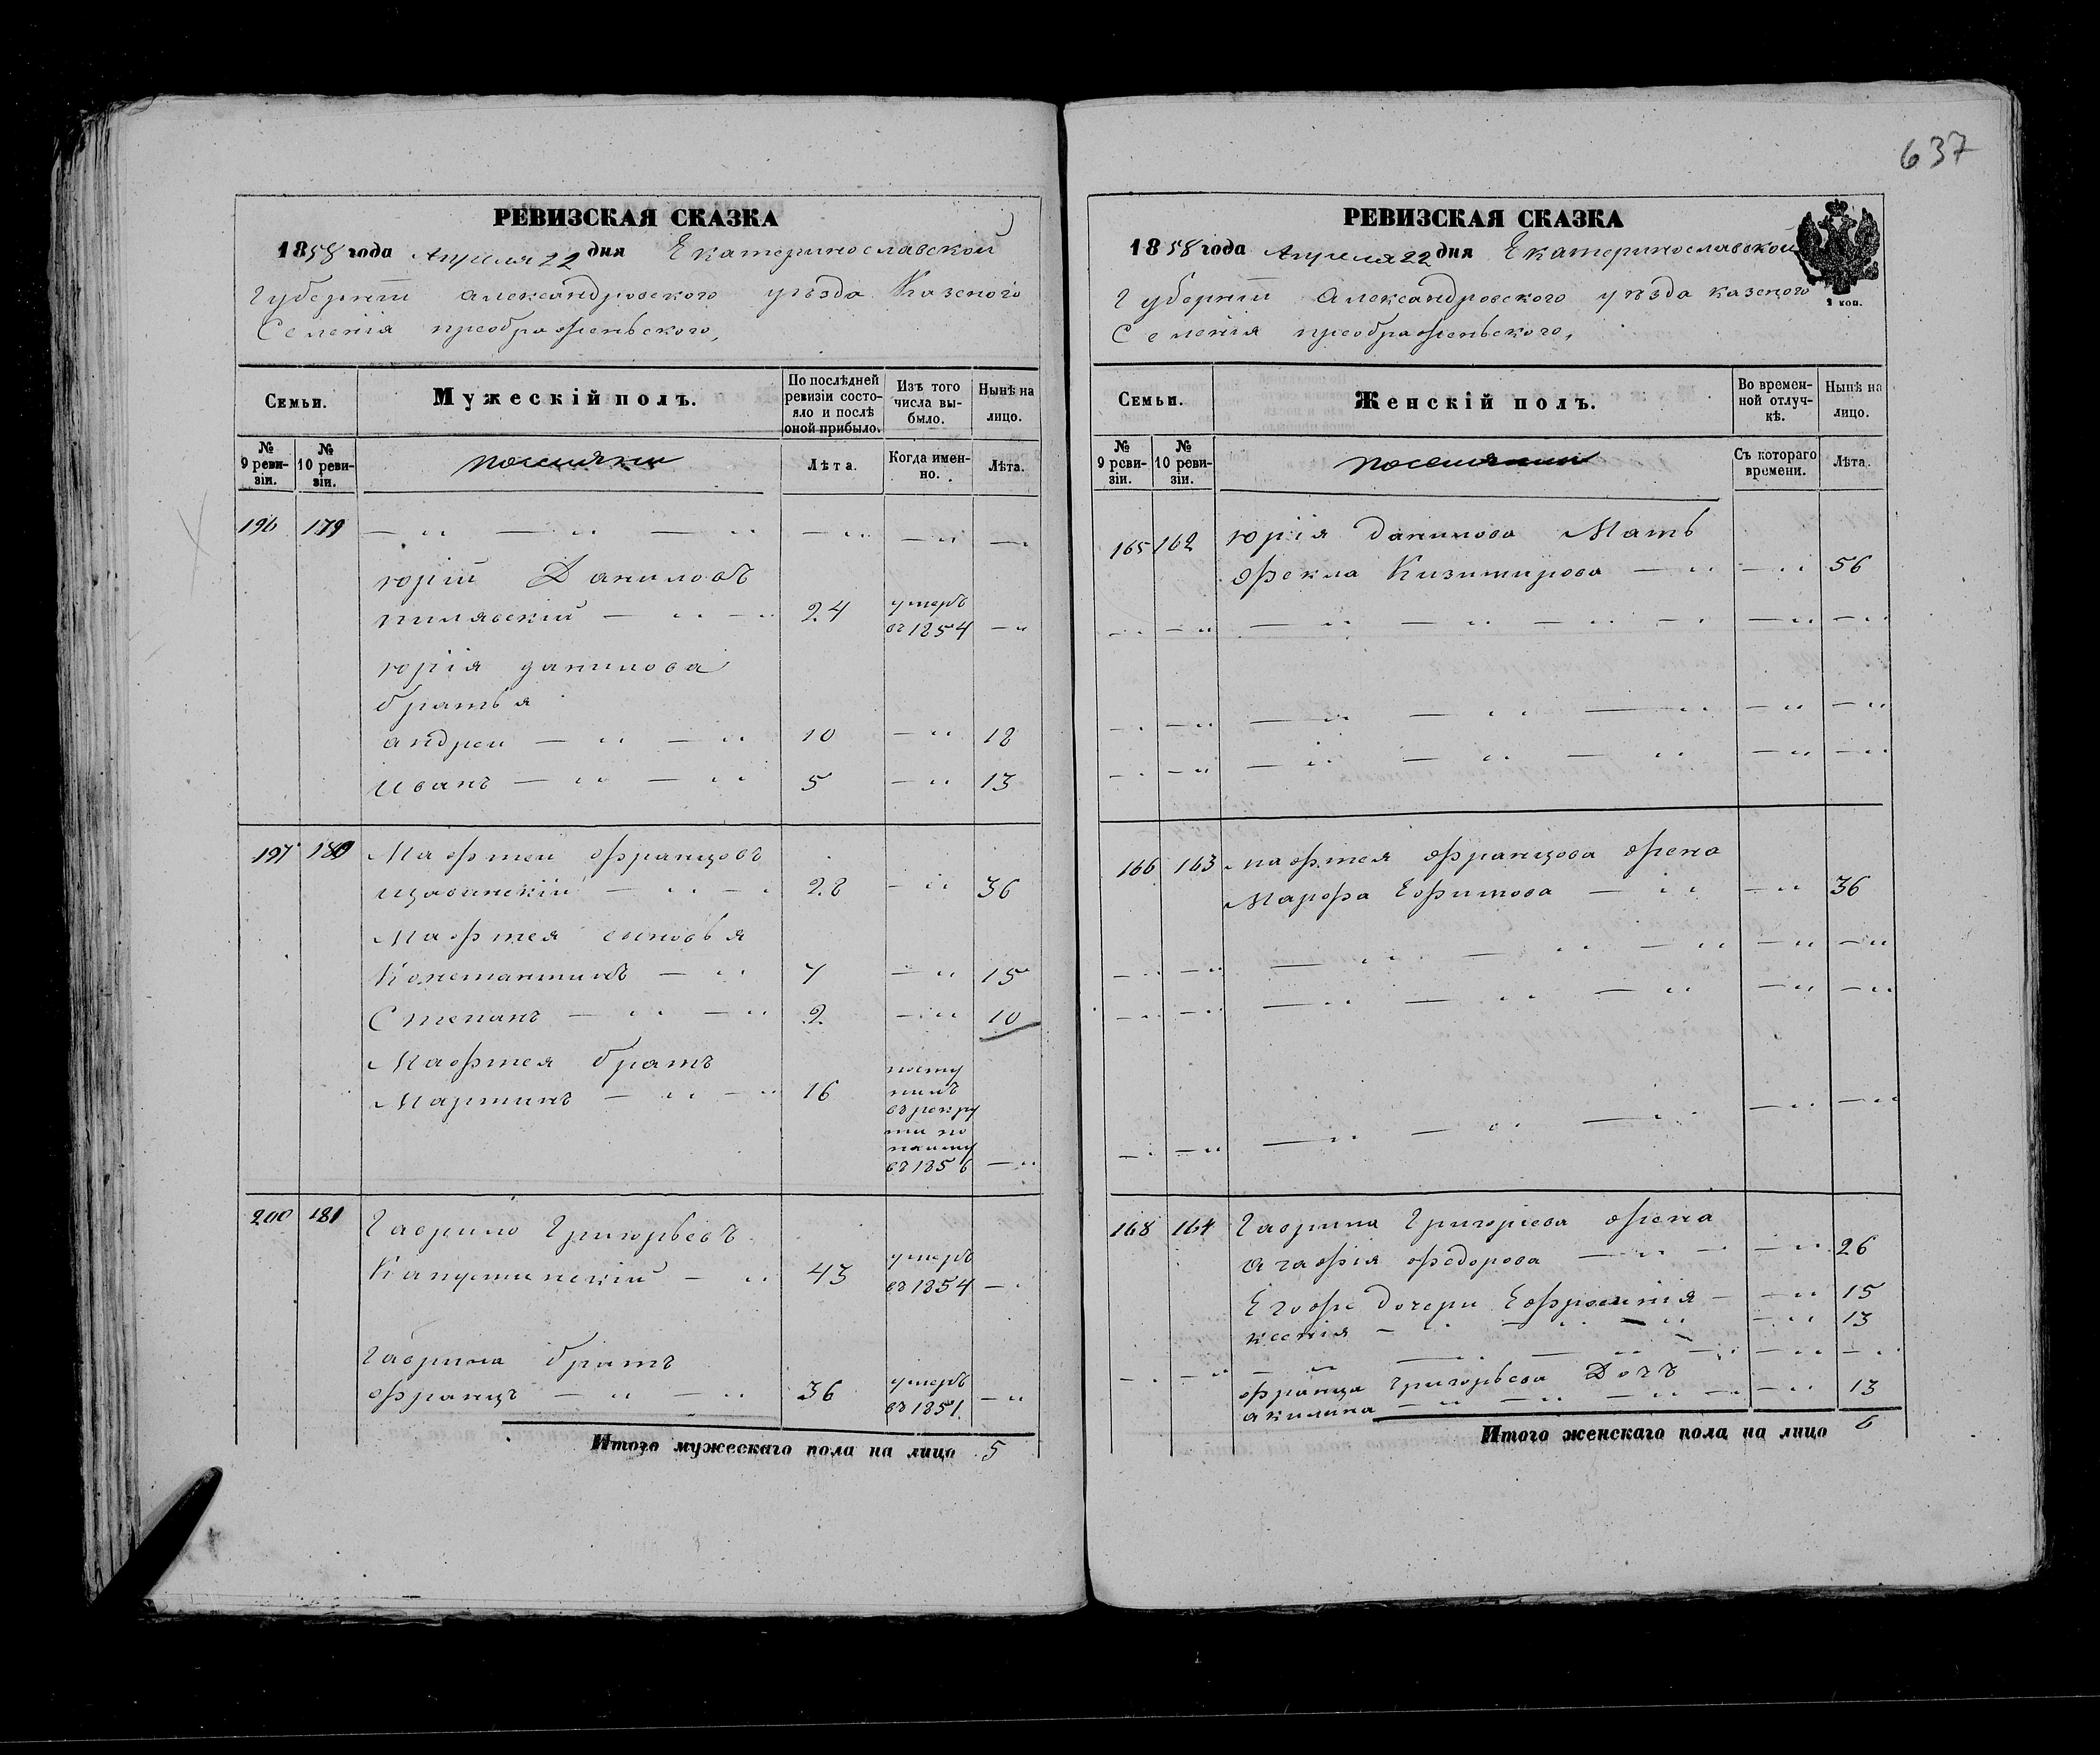 637
РЕВИЗСКАЯ СКАЗКА
1858 года Апреля 22 дня Екатеринославской
Губернти александровского уѣзда Казеного
Селенія преображеньского,
Семьи.
Мужескій полъ.
По послѣдней ревизіи состояло и послѣ оной прибыло.
Изъ того числа выбыло.
Нынѣ на лицо.
№ 9 ревизіи.
№ 10 ревизіи.
поселяни
Лѣта.
Когда именно.
Лѣта.
196 179
юрій Даниловъ
24 умеръ въ 1854
юрія данилова
братья
андреи 10 18
иванъ 5 13
197 180 Мафтеи францовъ
28 36
Мафтея сыновья
Константинъ 7 15
Степанъ 2 10
Мафтея братъ
Мартинъ 16 посту
пилъ
въ рекру
ти по
найму
въ 1856
200 181 Гаврило Григорьевъ
Капустинскій 43 умеръ въ 1854
Гаврила братъ
францъ 36 умеръ въ 1851.
Итого мужескаго пола на лицо 5
РЕВИЗСКАЯ СКАЗКА
1858 года Апреля 22 дня Екатеринославской
Губернти Александровского уѣзда казеного
Селенія преображеньского,
1 коп.
Семьи.
Женскій полъ.
Во временной отлучкѣ.
Нынѣ на лицо.
№ 9 ревизіи.
№ 10 ревизіи.
поселянки
Съ котораго времени.
Лѣта.
165 162 юрія данилова Мать
фекла Кизимирова 56
166 163 мафтея францова жена
Марфа Ефимова 36
168 164 Гаврила Григоріева жена
агафія федорова 26
Егоже дочери Ефросинія 15
ксенія 13
францa григорьева Дочъ
акилина 13
Итого женскаго пола на лицо 6